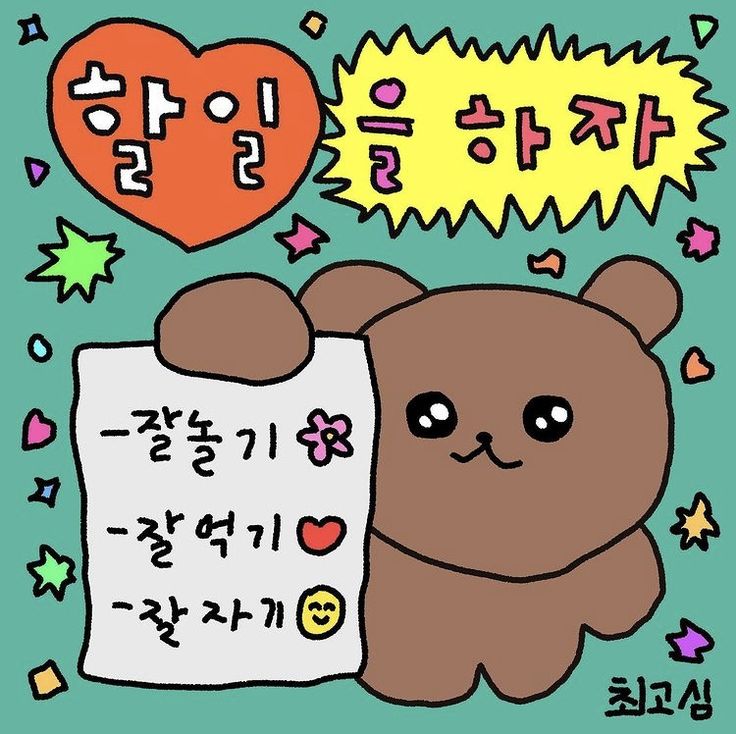 할일을 하자
-잘놀기
-잘먹기
-잘자기
최고심